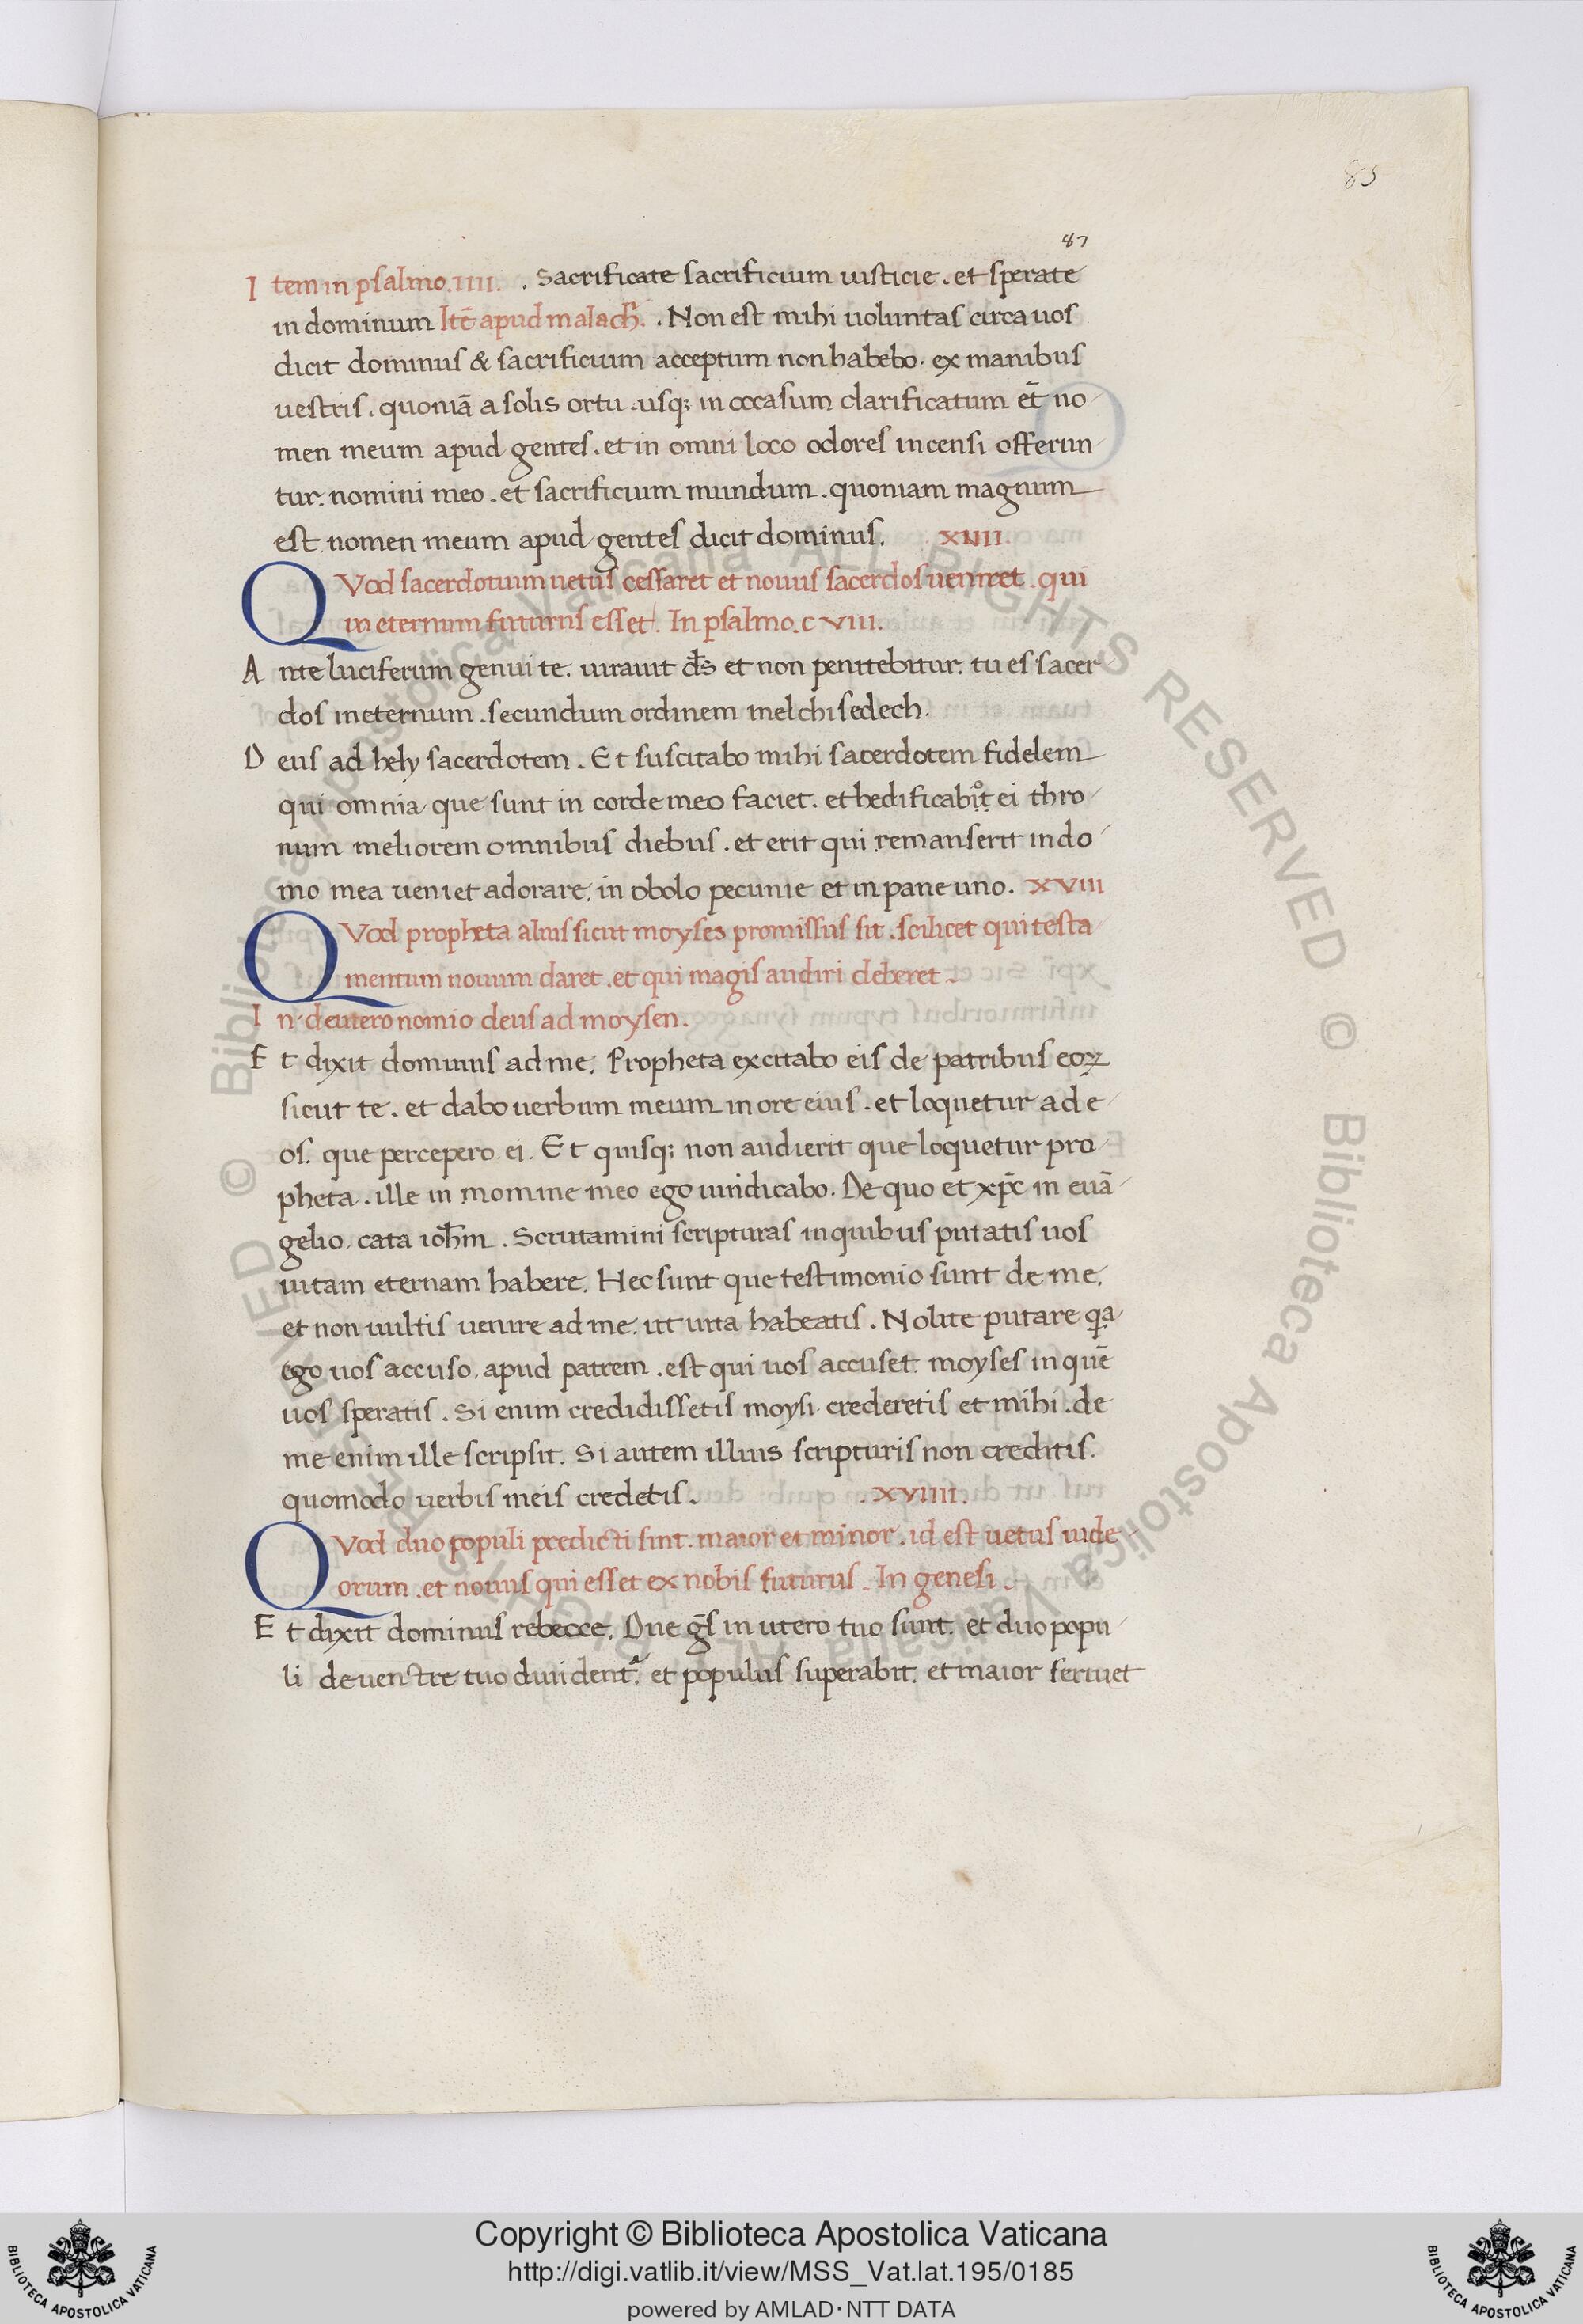 85
87
Item in psalmo .IIII. . Sacrificate sacrificium iusticie . et sperate
in dominum Itē apud malach̄ . . Non est mihi uoluntas circa uos
dicit dominus & sacrificium acceptum non habebo . ex manibus
uestris . quoniā a solis ortu . usq; in occasum clarificatum ēt no-
men meum apud gentes . et in omni loco odores incensi offerun-
tur . nomini meo . et sacrificium mundum . quoniam magnum
est nomen meum apud gentes dicit dominus . XVII.
QVod sacerdotium uetus cessaret et nouus sacerdos ueniret . qui
in eternum futurus esset . In psalmo . CVIII.
Ante luciferum genui te . iurauit dēs et non penitebitur . tu es sacer
dos in eternum . secundum ordinem melchisedech .
Deus ad hely sacerdotem . Et suscitabo mihi sacerdotem fidelem
qui omnia que sunt in corde meo faciet . et hedificabit ei thro-
num meliorem omnibus diebus . et erit qui remanserit in do-
mo mea ueniet adorare . in obolo pecunie et in pane uno . XVIII
QVod propheta alius sicut moyses promissus sit . scilicet qui testa
mentum nouum daret . et qui magis audiri deberet .
In deuteronomio deus ad moysen .
Et dixit dominus ad me . Propheta excitabo eis de patribus eoꝝ
sicut te . et dabo uerbum meum in ore eius . et loquetur ad e-
os . que percepero ei . Et quisq; non audierit que loquetur pro-
pheta . ille in momine meo ego uindicabo . De quo et xp̄c in euā-
gelio cata ioh̄m . Scrutamini scripturas in quibus putatis uos
uitam eternam habere . Hec sunt que testimonio sunt de me .
et non uultis uenire ad me . ut uita habeatis . Nolite putare qa
ego uos accuso . apud patrem . est qui uos accuset . moyses in quē
uos speratis . Si enim credidissetis moysi crederetis et mihi . de
me enim ille scripsit . Si autem illius scripturis non creditis .
quomodo uerbis meis credetis . . XVIIII .
QVod duo populi predicti sint . maior et minor . id est uetus iude-
orum . et nouus qui esset ex nobis futurus . In genesi .
Et dixit dominus rebecce . Due gēs in utero tuo sunt . et duo popu-
li de uentre tuo diuident᷑ . et populus superabit . et maior seruiet
Copyright © Biblioteca Apostolica Vaticana
http://digi.vatlib.it/view/MSS_Vat.lat.195/0185
powered by AMLAD·NTT DATA
BIBLIOTECA APOSTOLICA VATICANA
BIBLIOTECA APOSTOLICA VATICANA
© Biblioteca Apostolica Vaticana ALL RIGHTS RESERVED
© Biblioteca Apostolica Vaticana ALL RIGHTS RESERVED